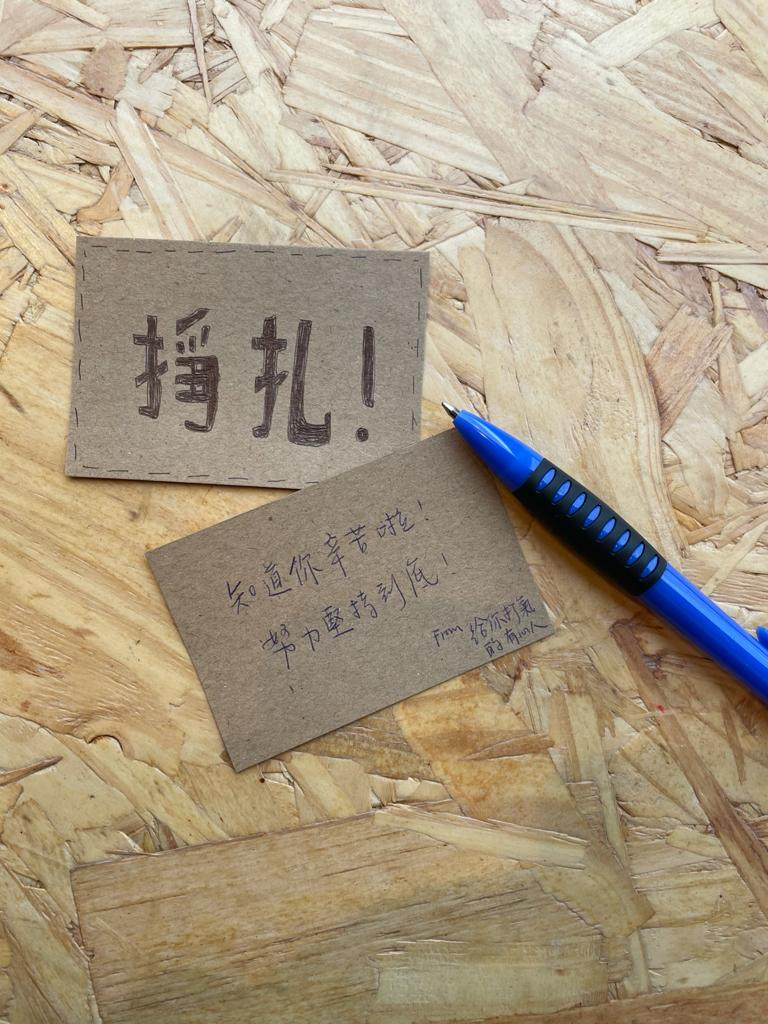 掙扎！
知道你辛苦啦！
努力堅持到底！
From 給你打氣
的有心人